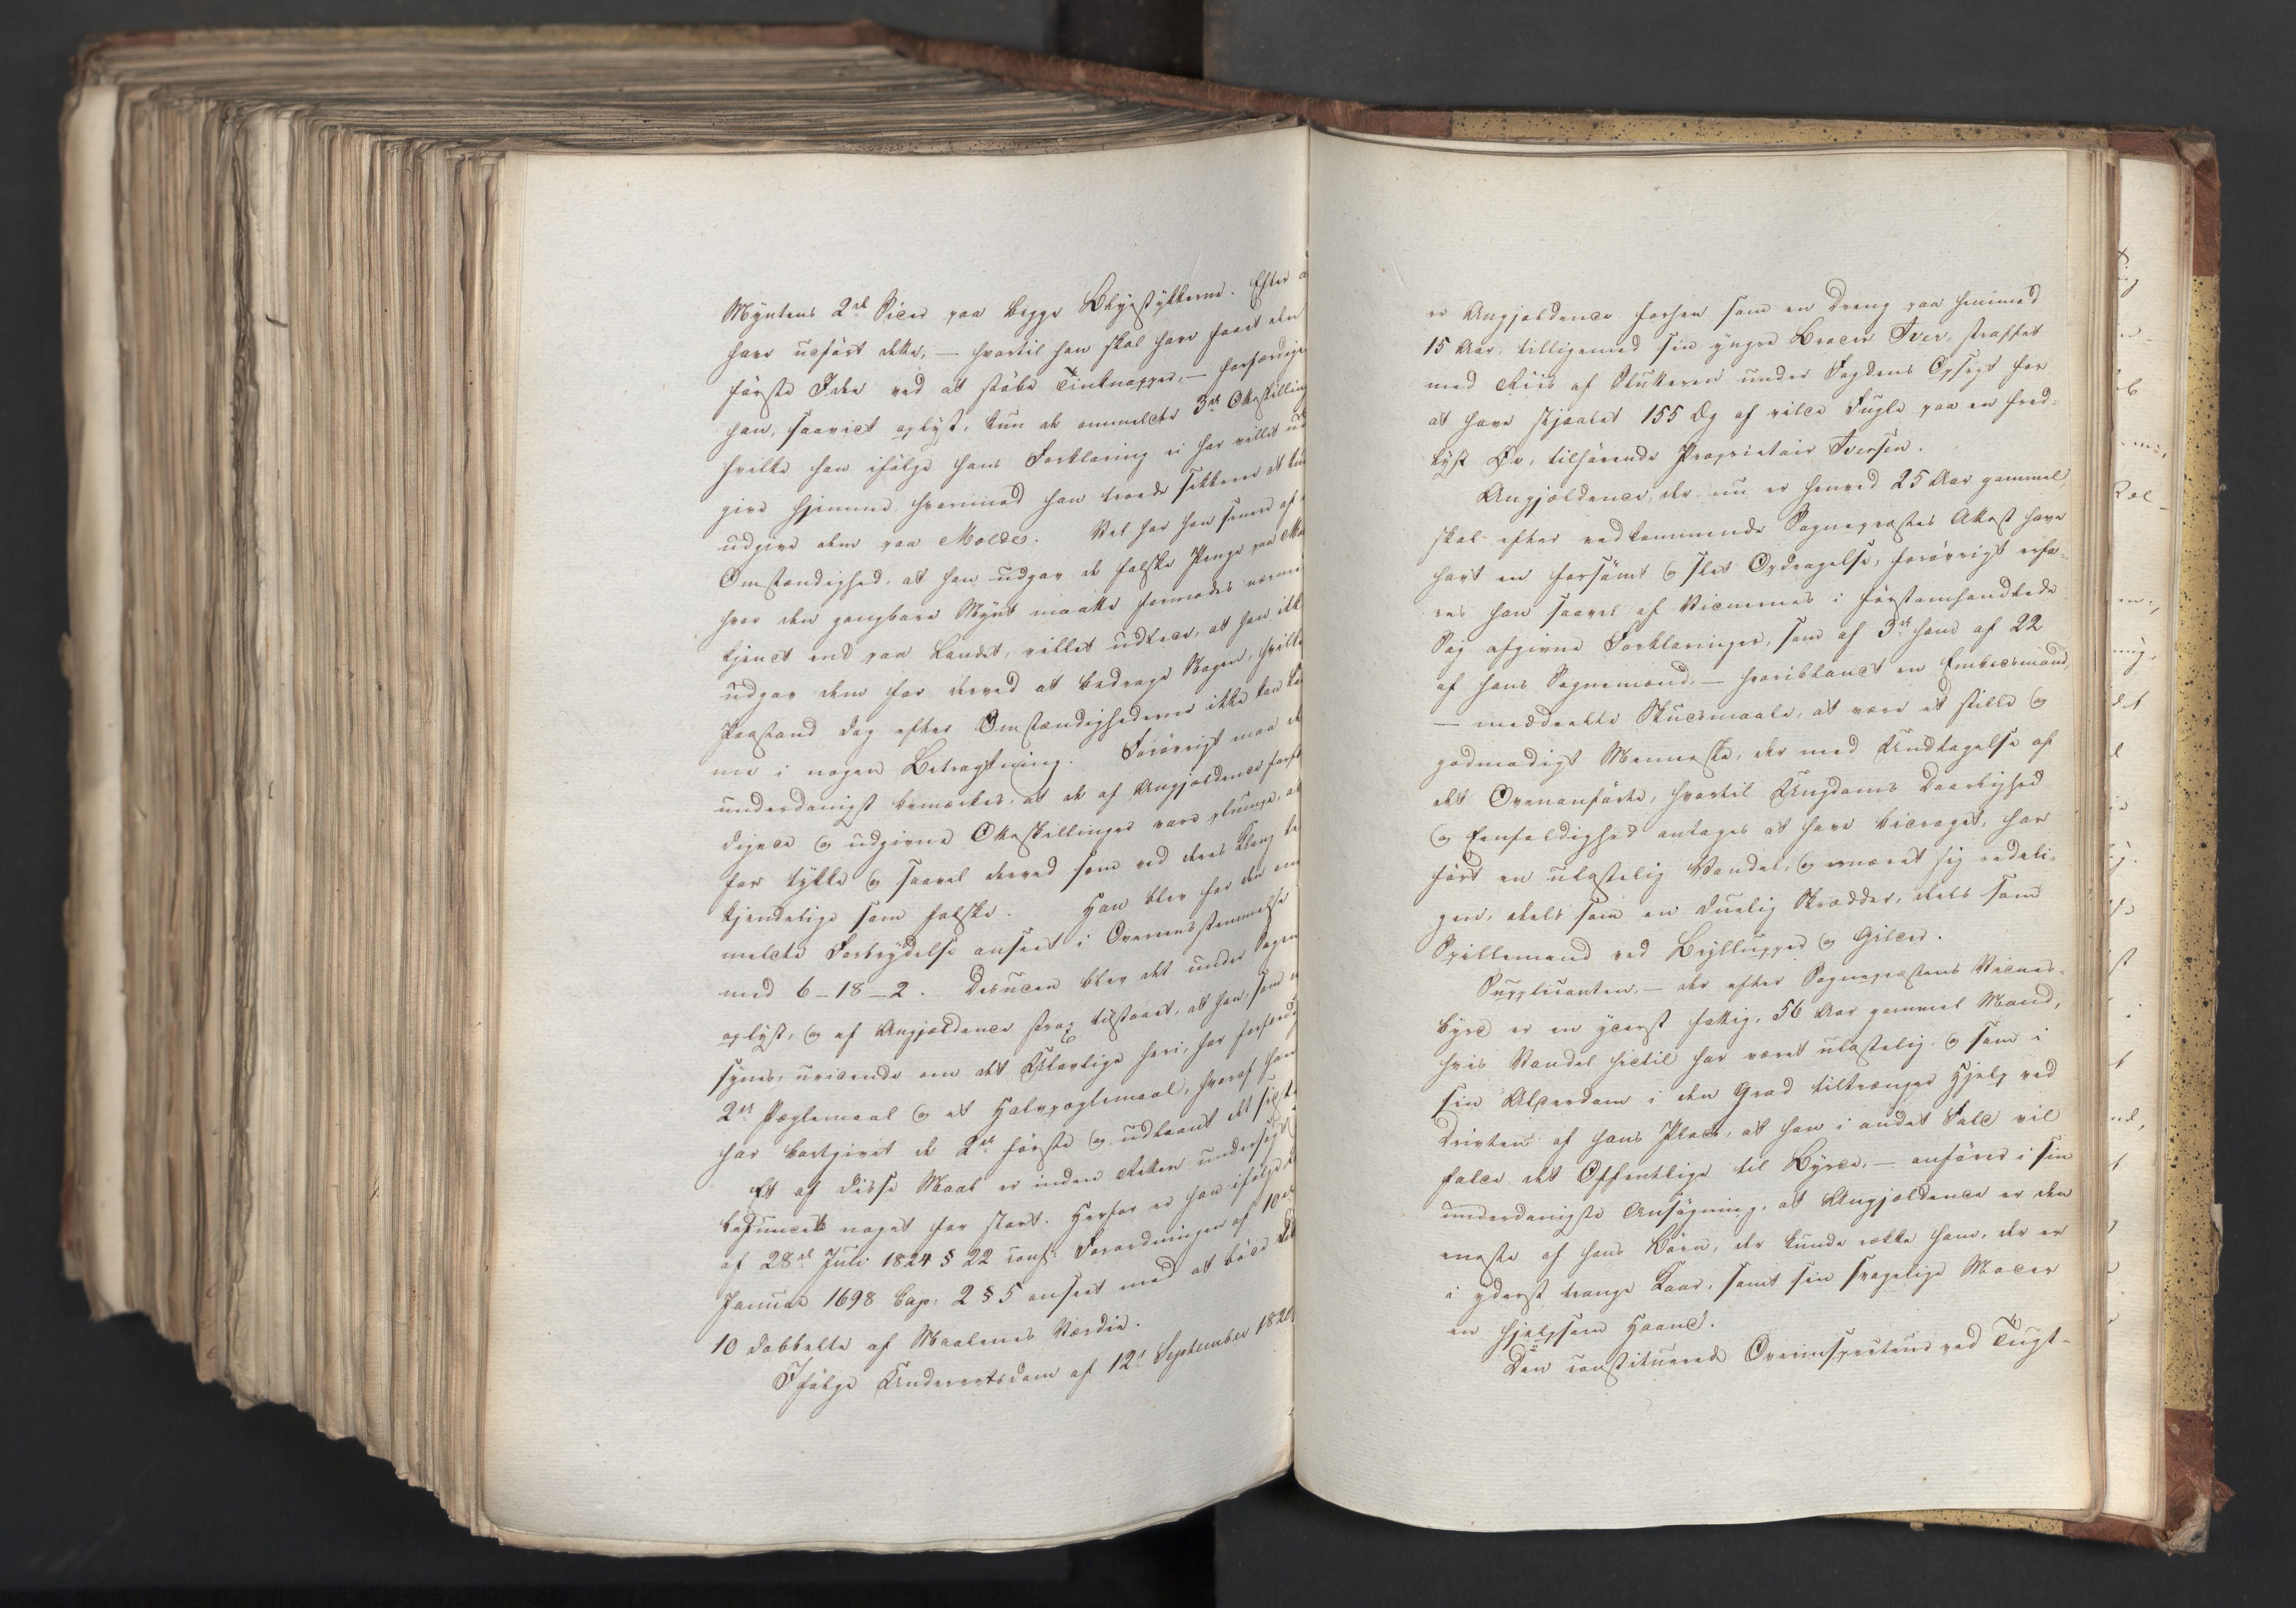 Myntens 2de Sider paa begge Blystykkerne. Efter
have udført dette, — hvortil han skal have faaet den
første Idee ved at støbe Tinknapper, — forfærdige
han, saavidt oplyst, kun de ommeldte 3de Otteskilling
hvilke han ifølge hans Forklaring ei har villet ud
give hjemme, hvorimod han troede sikkrere at kun
udgive dem paa Molde. Vel har han senere af
Omstændighed, at han udgav de falske Penge paa Mol
hvor den gangbare Mynt maatte formodes nærme
kjendt end paa Landet, villet udlede, at han ikke
udgav dem for derved at bedrage Nogen, hvilke
Paastand dog efter Omstændighederne ikke kan kom
me i nogen Betragtning. Forøvrigt maa de
underdanigst bemærkes, at de af Angjældende forfær
digede og udgivne Otteskillinger vare plumpe, al
for tykke og saavel derved som ved deres Klang let
kjendelige som falske. Han blev for den om
meldte Forbrydelse anseet i Overeensstemmelse
med 6-18-2. Desuden blev det under Sagen
oplyst, og af Angjældende strax tilstaaet, at han, som d
synes, uvidende om det Ulovlige heri, har forfærdi
2de Pæglemaal og et Halvpæglemaal, hvoraf han
har bortgivet de 2de første og udlaant det sidste
Et af disse Maal er inden Retten undersøgt
befundet noget for stort. Herfor er han ifølge
af 28de Juli 1824 § 22 conf: Forordningen af 10de
Januar 1698 Cap: 2 § 5 anseet med at bøde det
10 dobbelte af Maalenes Værdie.
Ifølge Underretsdom af 12te September 182
er Angjældende forhen som en Dreng paa henimod
15 Aar, tilligemed sin yngre Broder Iver, straffet
med Riis af Slutteren under Fogdens Opsigt for
at have stjaalet 155 Æg af vilde Fugle paa en fred-
lyst Øe, tilhørende Proprietair Iversen.
Angjældende, der nu er henved 25 Aar gammel,
skal efter vedkommende Sognepræstes Attest have
havt en forsømt og slet Opdragelse, forøvrigt erfa-
res han saavel af Vidnernes i førstemhandlede
Sag afgivne Forklaringer, som af 3de ham af 22
af hans Sognemænd, — hvoriblandt en Embedsmand,
— meddeelte Skudsmaale, at være et stille og
godmodigt Menneske, der med Undtagelse af
det Ovenanførte, hvortil Ungdoms Daarlighed
og Eenfoldighed antages at have bidraget, har
ført en ulastelig Vandel, og ernæret sig redeli-
gen, deels som en duelig Skrædder, deels som
Spillemand ved Bryllupper og Gilder.
Supplicanten, — der efter Sognepræstens Vidnes-
byrd er en yderst fattig, 56 Aar gammel Mand,
hvis Vandel hidtil har været ulastelig, og som i
sin Alderdom i den Grad tiltrænger Hjelp ved
Driften af hans Plads, at han i andet Fald vil
falde det Offentlige til Byrde, — anfører i sin
underdanigste Ansøgning, at Angjældende er den
eneste af hans Børn, der kunde række ham, der er
i yderst trange Kaar, samt sin svagelige Moder
en hjelpsom Haand.
Den constituerede Overinspecteur ved Tugt-